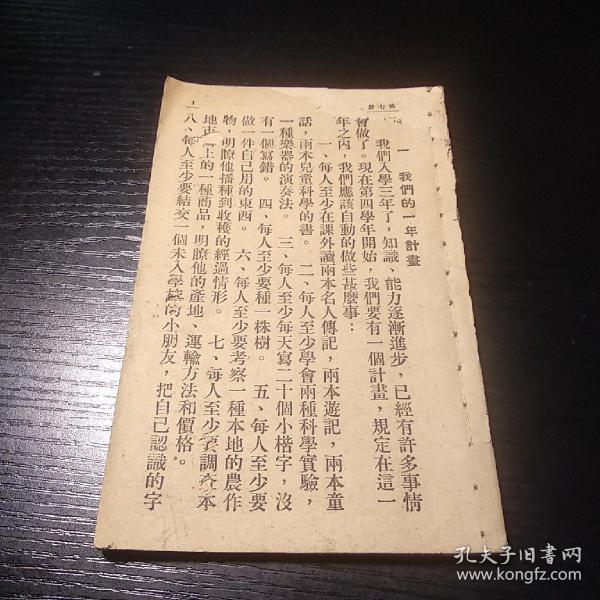 第七册
一 我們的一年計畫
我們入學三年了，知識、能力逐漸進步，已經有許多事情
會做了。現在第四學年開始，我們要有一個計畫，規定在這一
年之內，我們應該自動的做些甚麼事：
一、每人至少在課外讀兩本名人傳記，兩本遊記，兩本童
話，兩本兒童科學的書。 二、每人至少學會兩種科學實驗，
一種樂器的演奏法。 三、每人至少每天寫二十個小楷字，沒
有一個寫錯。 四、每人至少要種一株樹。 五、每人至少要
做一件自己用的東西。 六、每人至少要考察一種本地的農作
物，明瞭他播種到收穫的經過情形。 七、每人至少要調查本
地市上的一種商品，明瞭他的產地、運輸方法和價格。
八、每人至少要結交一個未入學校的小朋友，把自己認識的字
孔夫子旧书网
www.kongfz.com